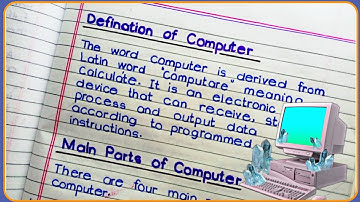 Defination of Computer
The word computer is derived from
Latin word "computare" meaning
calculate. It is an electronic
device that can receive, st
process and output data
according to programmed
instructions.
Main Parts of Computer
There are four main
computer.